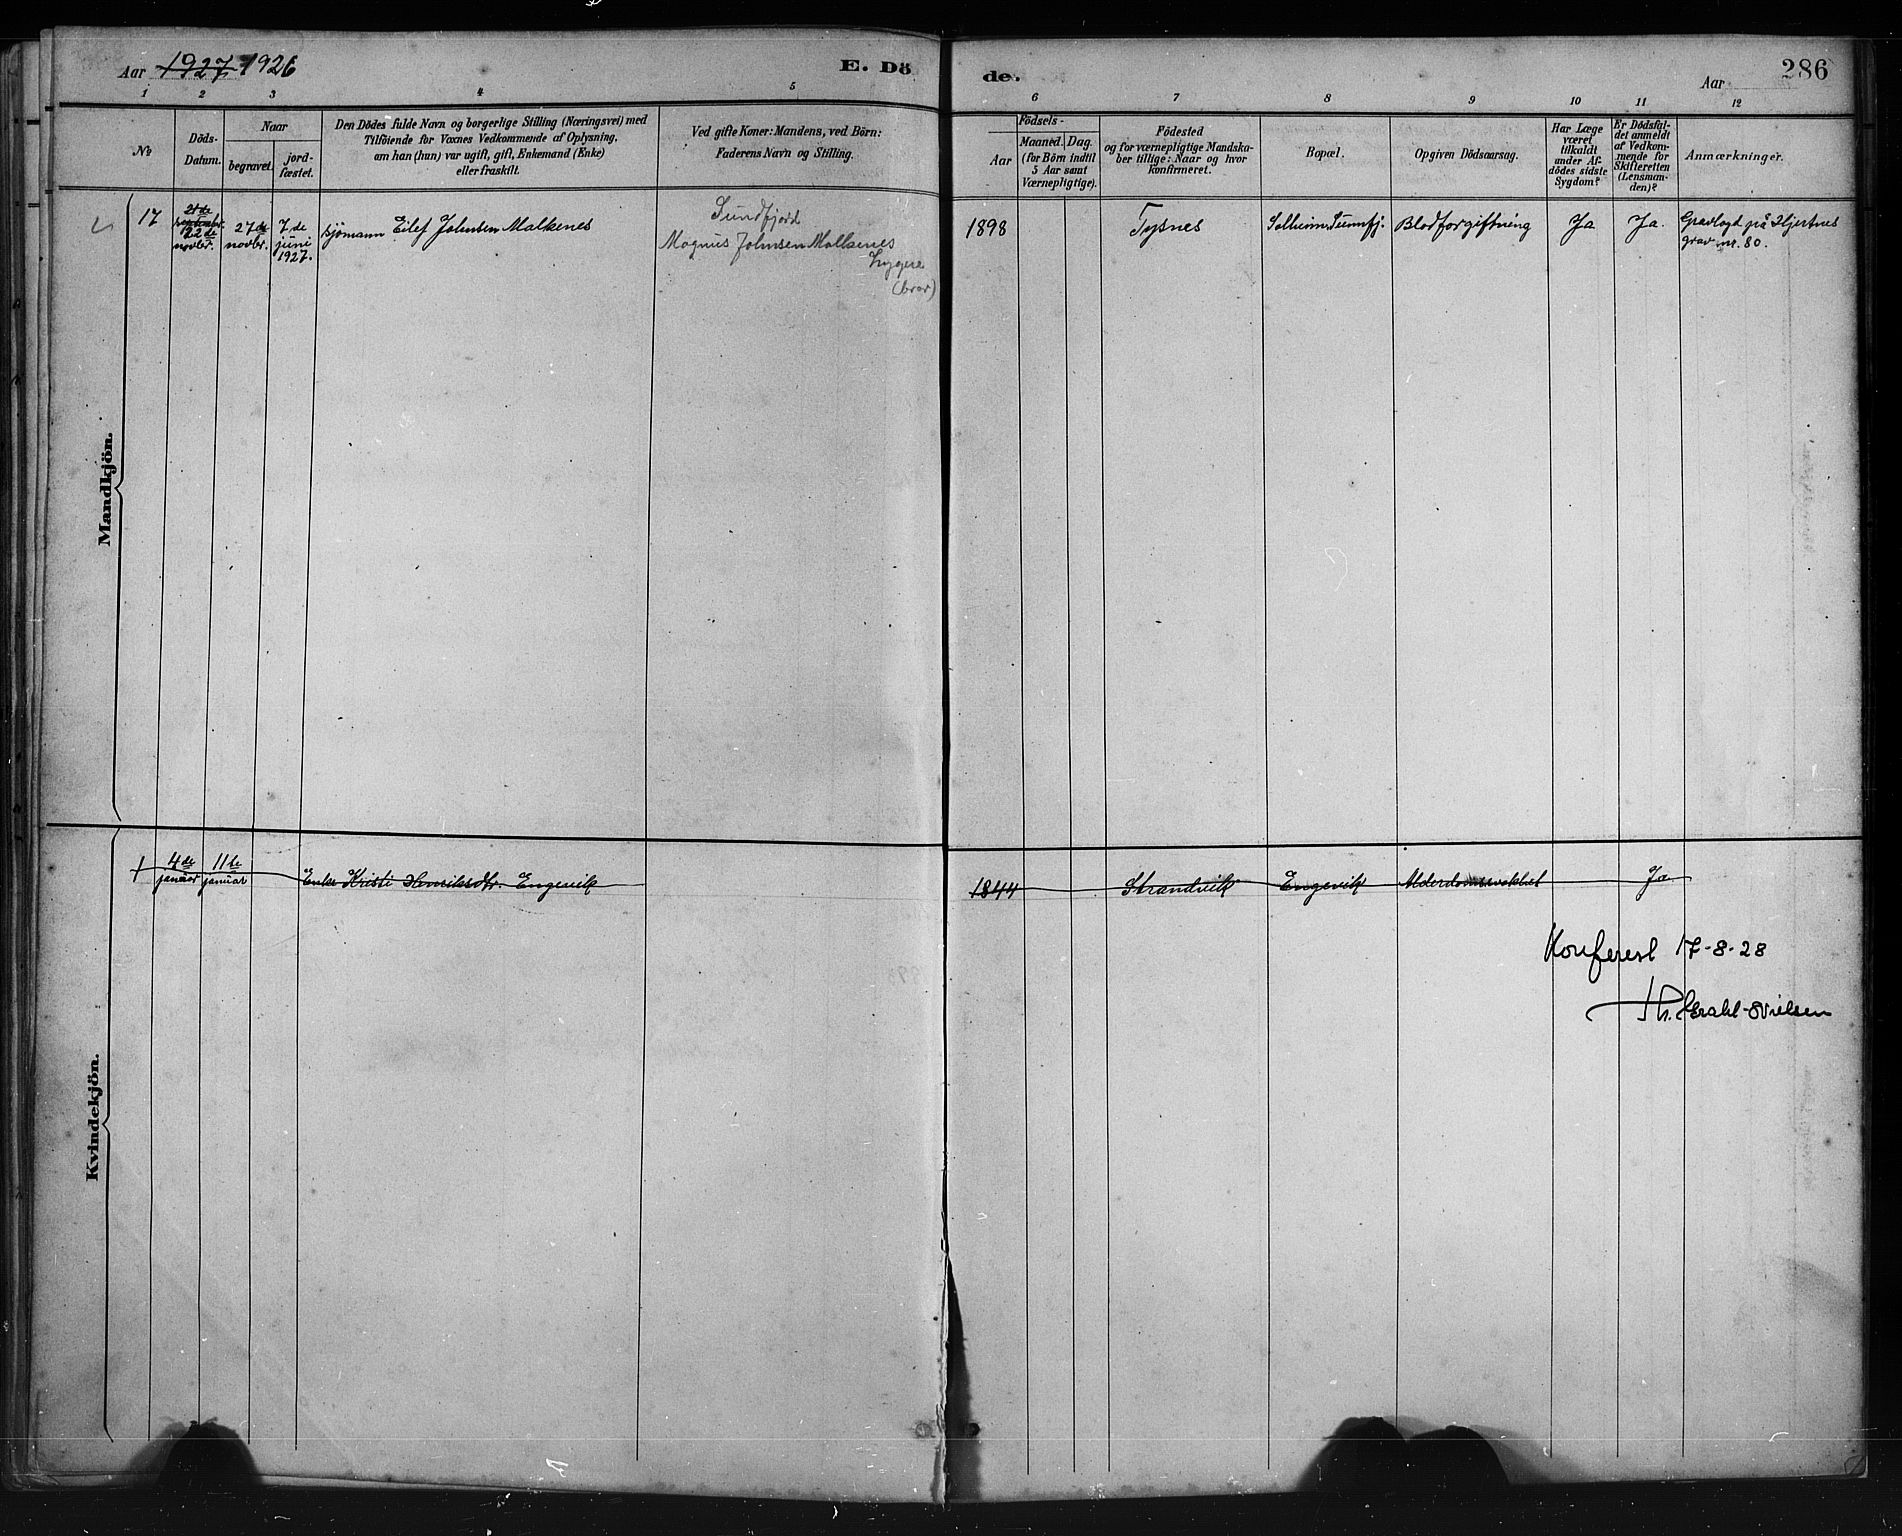 Aar 1927 1926
E. Dö
de.
Aar
286
1 2 3 4 5 6 7 8 9 10 11 12
No
Döds-
Datum.
Naar
begravet.
jord-
fæstet.
Den Dödes fulde Navn og borgerlige Stilling (Næringsvei) med
Tilföiende for Voxnes Vedkommende af Oplysning,
om han (hun) var ugift, gift, Enkemand (Enke)
eller fraskilt.
Ved gifte Koner: Mandens, ved Börn:
Faderens Navn og Stilling.
Födsels-
Aar
Maaned. Dag.
(for Börn indtil
5 Aar samt
Værnepligtige).
Födested
og for værnepligtige Mandska-
ber tillige: Naar og hvor
konfirmeret.
Bopæl.
Opgiven Dödsaarsag.
Har Læge
været
tilkaldt
under Af-
dödes sidste
Sygdom?
Er Dödsfal-
det anmeldt
af Vedkom-
mende for
Skifteretten
(Lensman-
den)?
Anmærkninger.
Mandkjön.
17
21de
septembr.
22de
novbr.
27de
novbr.
7de
juni
1927.
sjömann Eilef Johnsen Malkenes
Sundfjord
Magnus Johnsen Malkenes
(bror)
1898
Tysnes
Solheim, Sunnfj.
Blodforgiftning
Ja
Ja.
Gravlagd på Hjertnes
grav nr. 80.
Kvindekjön.
1
4de
januar
11te
januar
Enke Kristi Henriksdtr. Engevik
1844
Strandvik
Engevik
Alderdomssvakhet
Ja
Konferert 17-8-28